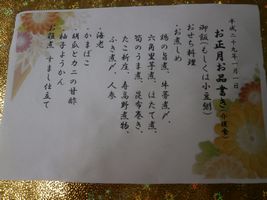 平成二十九年一月一日
お正月お品書き(介護食)
御飯(もしくは小豆粥)
おせち料理
・お煮しめ
鶏の旨煮、牛蒡煮〆、
六角里芋煮、ほたて煮、
筍のうま煮、昆布巻き、
たこ新庄、寿高野煮物、
ふき煮〆、人参
・海老
・かまぼこ
・胡瓜とカニの甘酢
・柚子ようかん
お雑煮 すまし仕立て